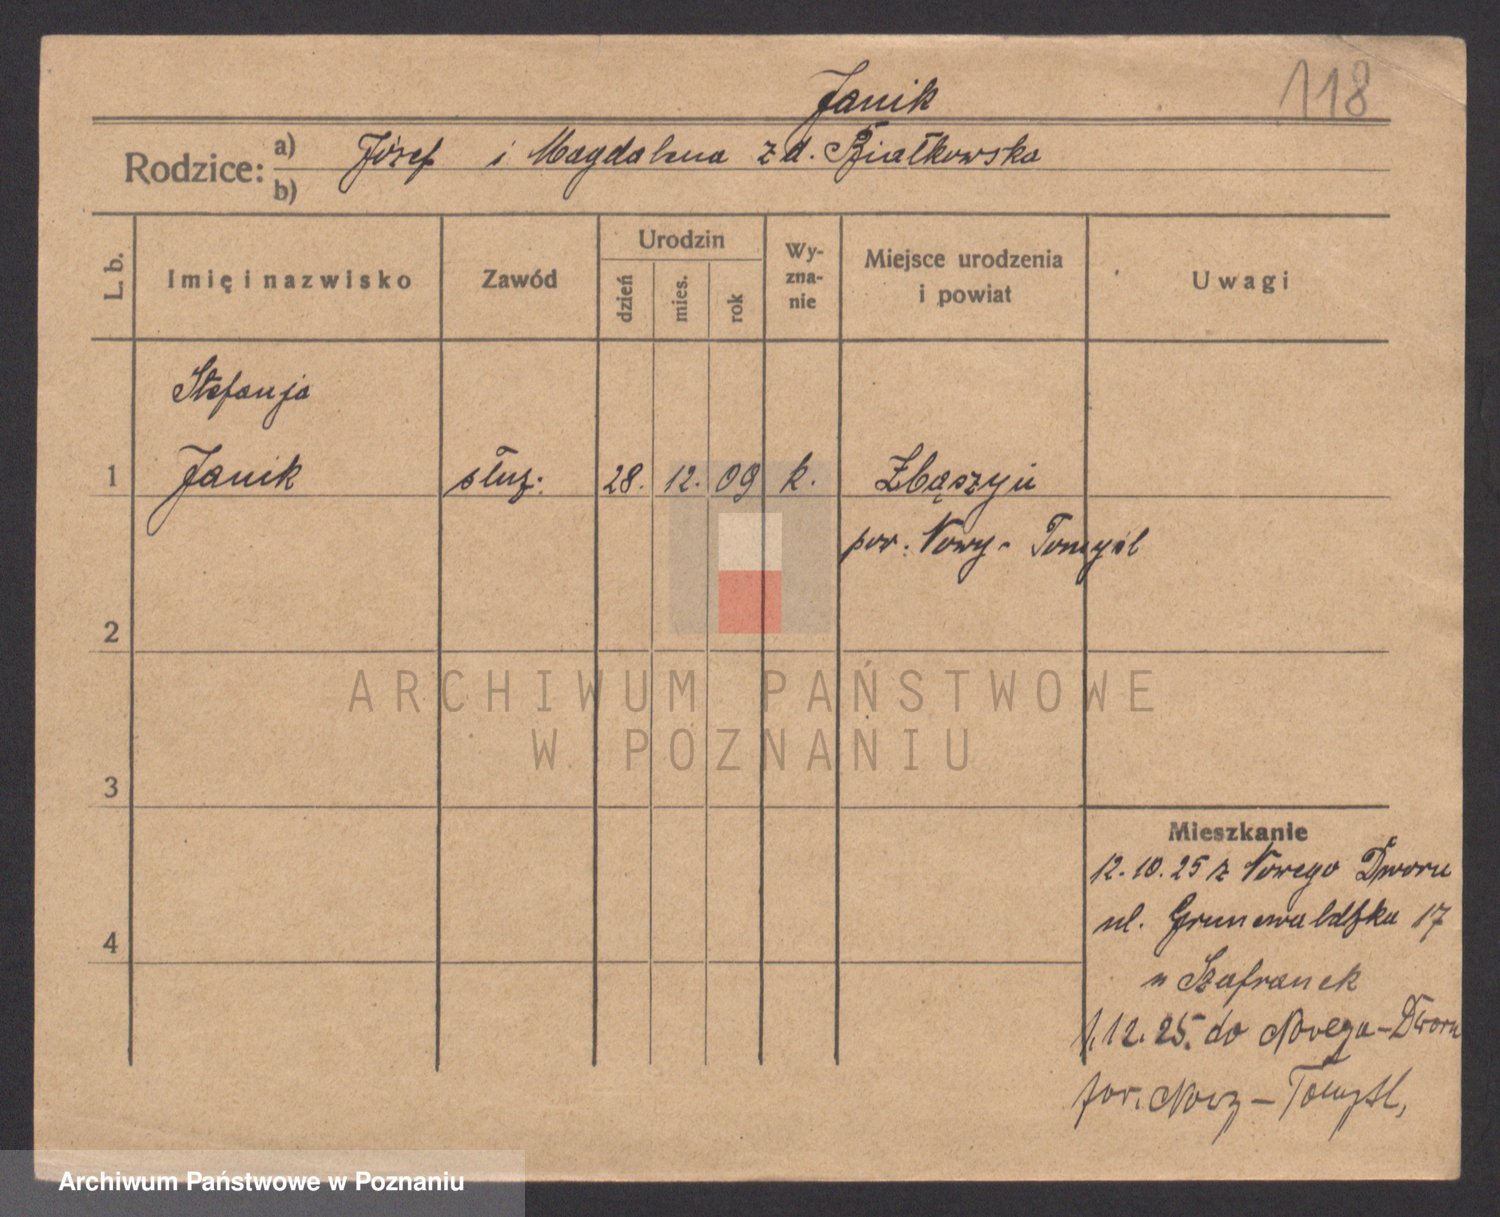 118
Janik
Rodzice: a) Józef i Magdalena z d. Białkowska
b)
L. b. Imię i nazwisko Zawód Urodzin dzień mies. rok Wyzna-nie Miejsce urodzenia i powiat Uwagi
Stefanja
1 Janik służ. 28. 12. 09 k. Zbąszyń
pow. Nowy-Tomyśl
2
ARCHIWUM PAŃSTWOWE
W POZNANIU
3
Mieszkanie
12.10.25 z Nowego Dworu
ul. Grunewaldzka 17
4
u Szafranek
1.12.25. do Nowego-Dworu
pow. Nowy-Tomyśl,
Archiwum Państwowe w Poznaniu